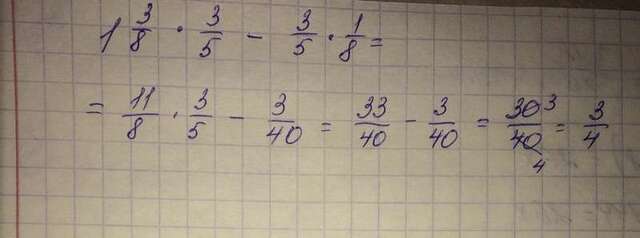 1 3/8 · 3/5 - 3/5 · 1/8 =
= 11/8 · 3/5 - 3/40 = 33/40 - 3/40 = 30 3/40 4 = 3/4